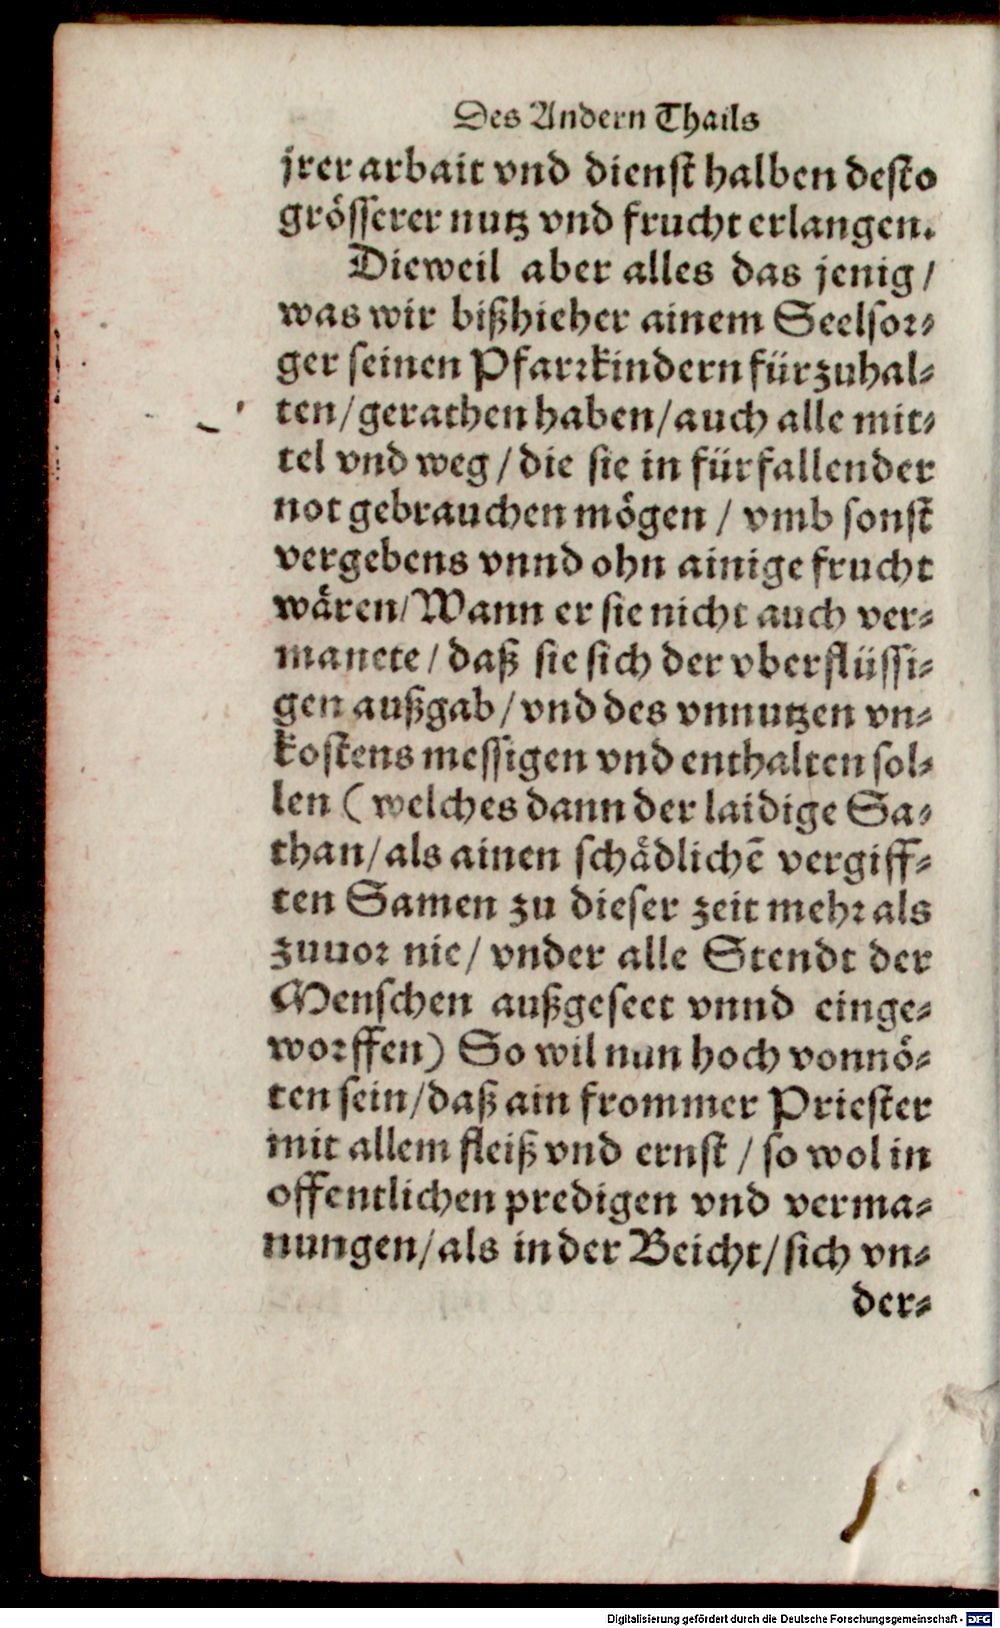 Des Andern Thails
jrer arbait vnd dienst halben desto
grösserer nutz vnd frucht erlangen.
Dieweil aber alles das jenig /
was wir bißhieher ainem Seelsor⸗
ger seinen Pfarrkindern fürzuhal⸗
ten / gerathen haben / auch alle mit⸗
tel vnd weg / die sie in fürfallender
not gebrauchen mögen / vmb sonst
vergebens vnnd ohn ainige frucht
wären / Wann er sie nicht auch ver⸗
manete / daß sie sich der vberflüssi⸗
gen außgab / vnd des vnnutzen vn⸗
kostens messigen vnd enthalten sol⸗
len ( welches dann der laidige Sa⸗
than / als ainen schädlichē vergiff⸗
ten Samen zu dieser zeit mehr als
zuuor nie / vnder alle Stendt der
Menschen außgeseet vnnd einge⸗
worffen) So wil nun hoch vonnö⸗
ten sein / daß ain frommer Priester
mit allem fleiß vnd ernst / so wol in
offentlichen predigen vnd verma⸗
nungen / als in der Beicht / sich vn⸗
der⸗
Digitalisierung gefördert durch die Deutsche Forschungsgemeinschaft - DFG